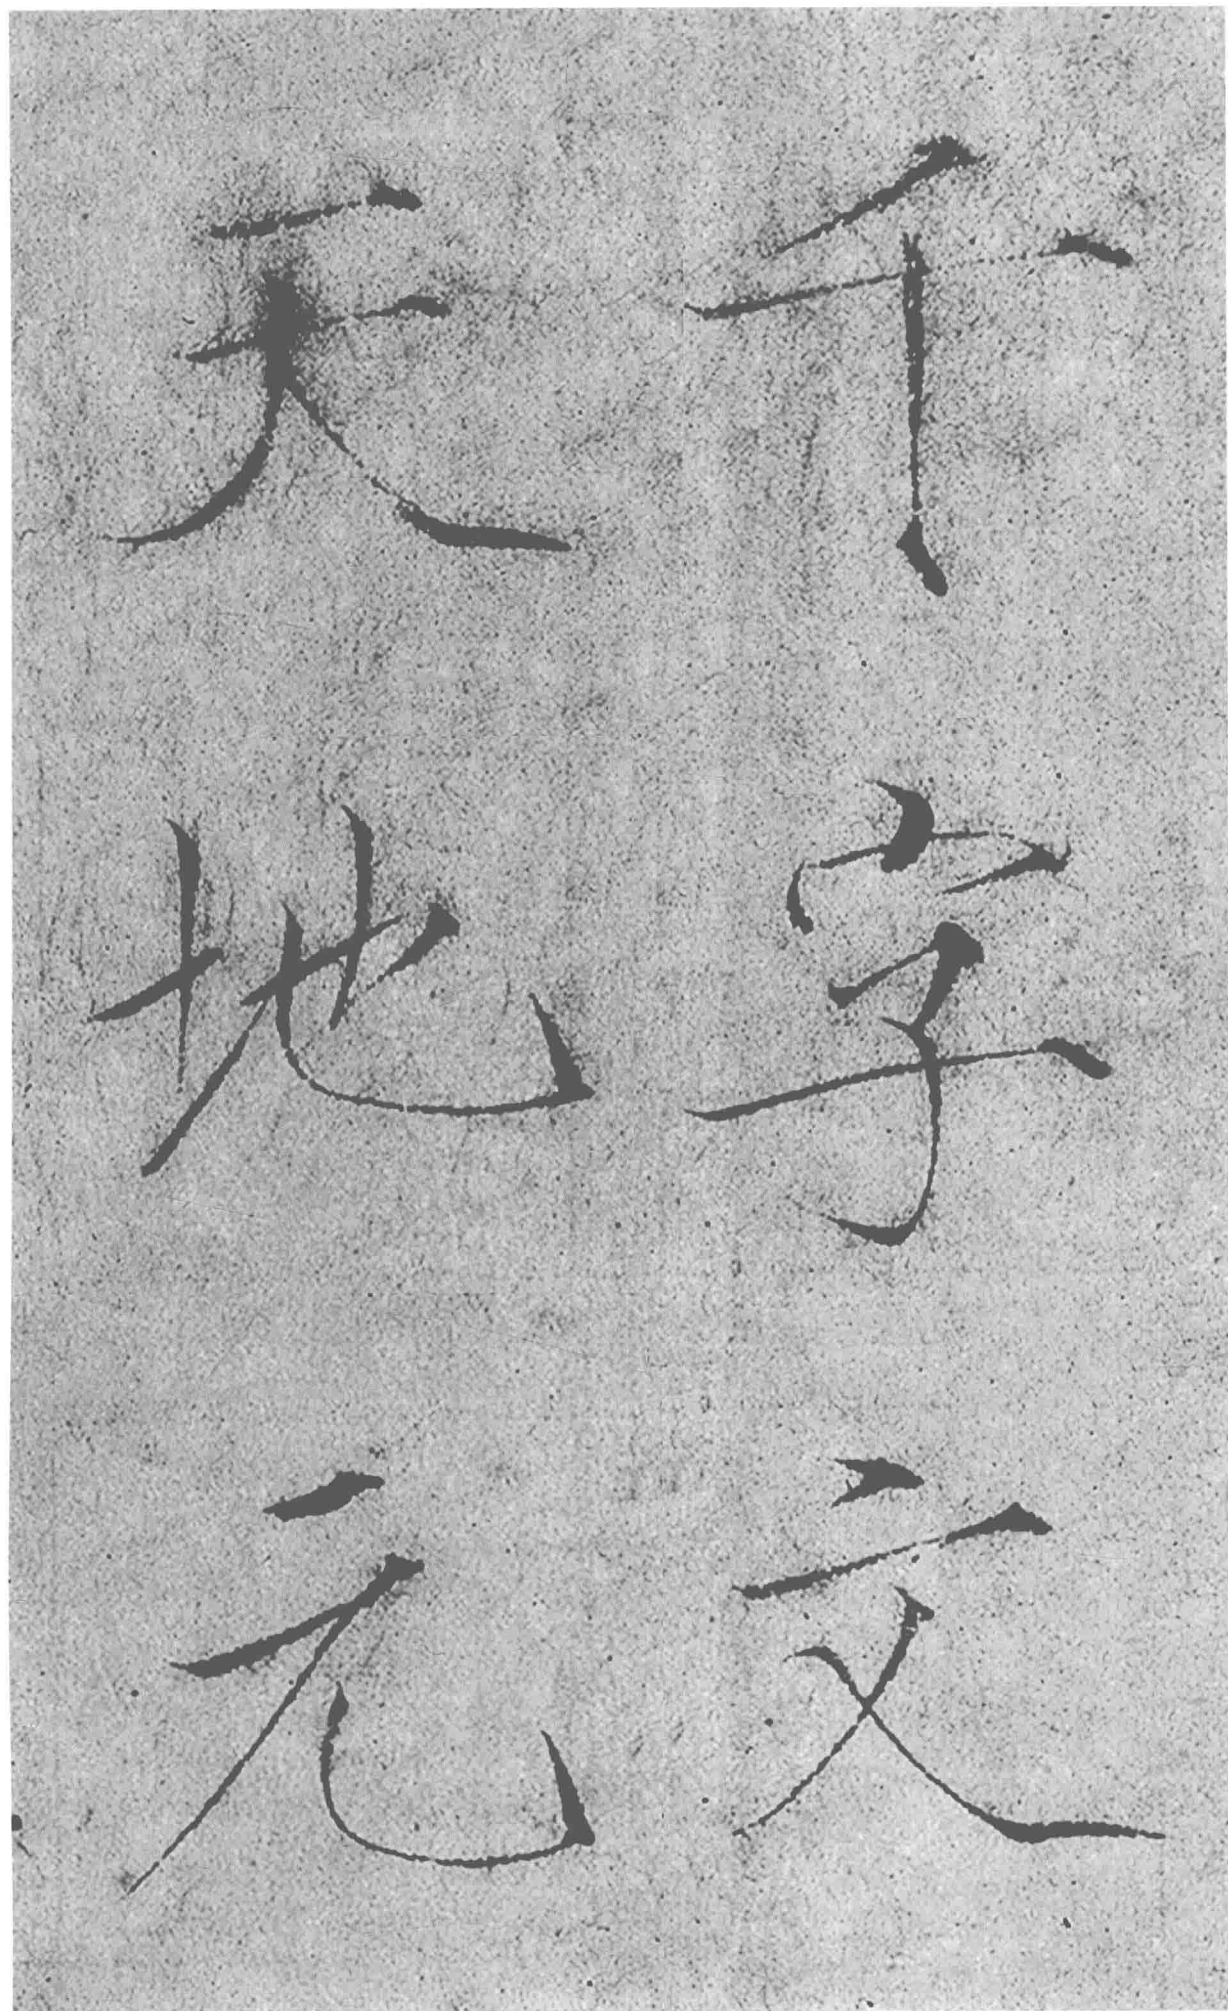 千字文
天地元